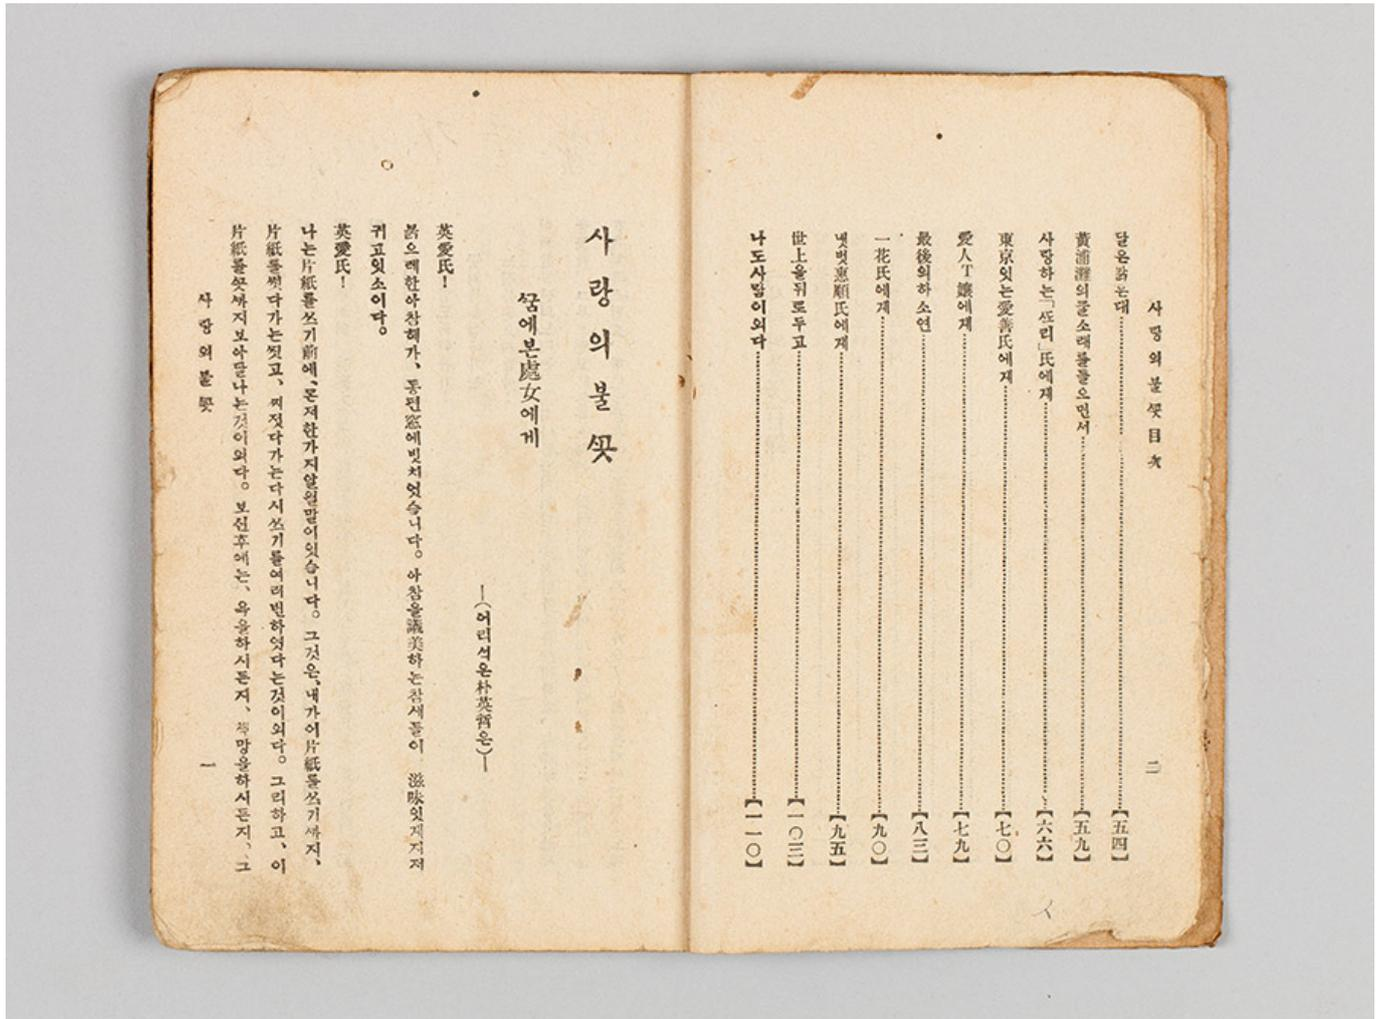 사랑의불꼿目次
二
달은ᄯᅥᆰ는대【五四】
黃浦灘의물소래를들으면서【五九】
사랑하는「ᄯᅩ리」氏에게【六六】
東京잇는愛善氏에게【七〇】
愛人T孃에게【七九】
最後의하소연【八三】
一花氏에게【九〇】
녯벗惠順氏에게【九五】
世上을뒤로두고【一〇三】
나도사람이외다【一一〇】
사랑의불ᄭᅩᆺ
ᄭᅮᆷ에본處女에게
―(어리석은朴英哲은)―
英愛氏!
으레한아참해가、동편窓에빗치엿슴니다。아참을讚美하는참새들이 滋味잇게지저
귀고잇소이다。
英愛氏!
나는片紙를쓰기前에、몬저한가지알욀말이잇슴니다。그것은、내가이片紙를쓰기ᄭᅡ지、
片紙를썻다가는ᄶᅵᆺ고、ᄶᅵ젓다가는다시쓰기를여러번하엿다는것이외다。그리하고、이
片紙를ᄭᅳᆺᄭᅡ지보아달나는것이외다。보신후에는、욕을하시든지、책망을하시든지、그
사랑의불ᄭᅩᆺ
一